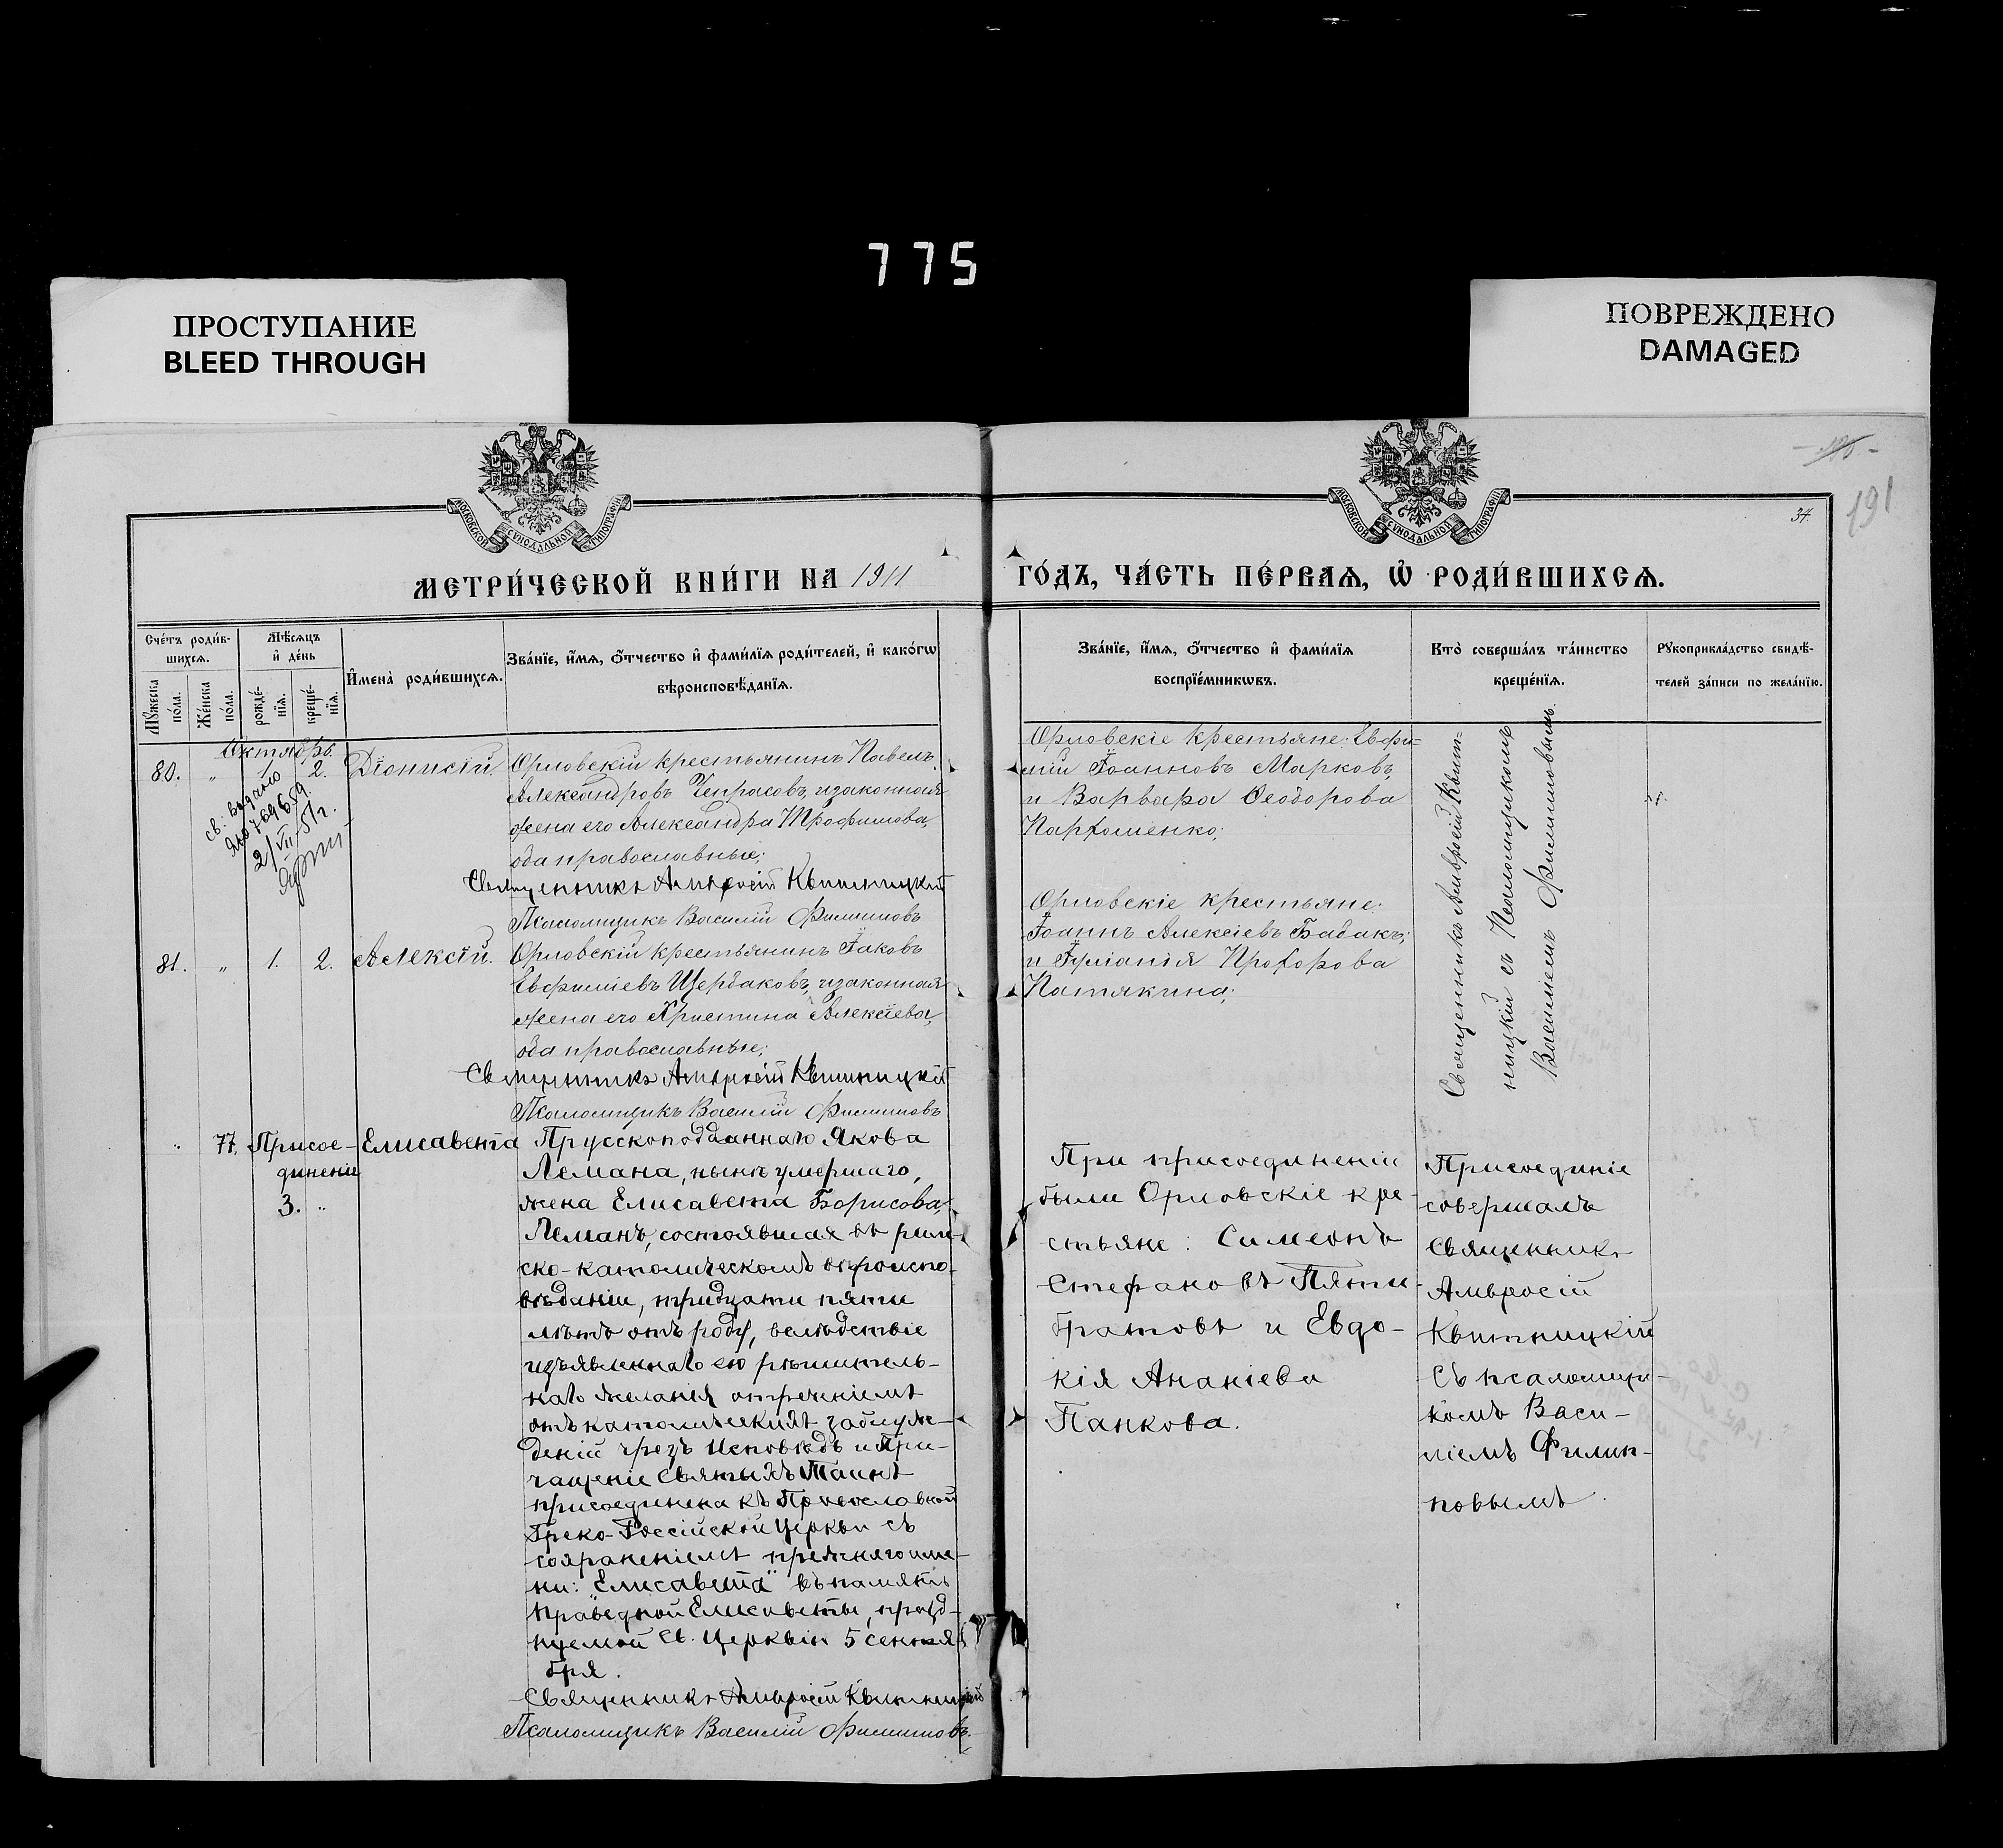 775
ПРОСТУПАНИЕ
BLEED THROUGH
ПОВРЕЖДЕНО
DAMAGED
МОСКОВСКОЙ СѴНОДАЛЬНОЙ ТИПОГРАФІИ
МОСКОВСКОЙ СѴНОДАЛЬНОЙ ТИПОГРАФІИ
191
34.
МЕТРИ́ЧЕСКОЙ КНИ́ГИ НА 1911
ГО́ДЪ, ЧА́СТЬ ПЕ́РВАѦ, Ѡ҆ РОДИ́ВШИХСѦ.
Сче́тъ роди́в-
шихсѧ.
Мꙋ́жеска по́ла.
Же́нска по́ла.
Мѣ́сѧцъ
и҆ де́нь
рожде́-
нїѧ.
креще́-
нїѧ.
И҆мена̀ роди́вшихсѧ.
Зва́нїе, и҆́мѧ, ѻ҆́тчество и҆ фами́лїѧ роди́телей, и҆ како́гѡ
вѣроисповѣ́данїѧ.
Зва́нїе, и҆́мѧ, ѻ҆́тчество и҆ фами́лїѧ
воспрїе́мникѡвъ.
Кто̀ соверша́лъ та́инство
креще́нїѧ.
Рꙋкоприкла́дство свидѣ́-
телей за́писи по жела́нїю.
Октябрь.
80. " 1. 2. Діонисій.
Орловскій крестьянинъ Павелъ
Александровъ Чепрасовъ, и законная
жена его Александра Трофимова,
оба православные;
Священникъ Амвросій Квитницкій
Псаломщикъ Василій Филипповъ
св. выдано
2/VII 51г.
Орловскіе крестьяне: Евфи-
мій Іоанновъ Марковъ,
и Варвара Ѳеодорова
Пархоменко;
81. " 1. 2. Алексій.
Орловскій крестьянинъ Іаковъ
Евфиміевъ Щербаковъ, и законная
жена его Христина Алексіева,
оба православные;
Священникъ Амвросій Квитницкій
Псаломщикъ Василій Филипповъ
Орловскіе крестьяне:
Іоаннъ Алексіевъ Бабакъ;
и Іуліанія Прохорова
Патякина;
Священникъ Амвросій Квит-
ницкій съ Псаломщикомъ
Василіемъ Филипповымъ.
" 77. Присое-
динение
3. "
Елисавета
Прусскоподданнаго Якова
Лемана, нынѣ умершаго,
жена Елисавета Борисова,
Леманъ, состоявшая въ рим-
ско-католическомъ вѣроиспо-
вѣданіи, тридцати пяти
лѣтъ отъ роду, вслѣдствіе
изъявленнаго ею рѣшитель-
наго желанія отреченіемъ
отъ католическихъ заблуж-
деній чрезъ Исповѣдь и При-
чащеніе Святыхъ Таинъ
присоединена къ Православной
Греко-Россійской Церкви съ
сохраненіемъ прежняго име-
ни: "Елисавета" въ память
праведной Елисаветы, празд-
нуемой Св. Церквію 5 сентя-
бря.
Священникъ Амвросій Квитницкій
Псаломщикъ Василій Филипповъ.
При присоединеніи
были Орловскіе кре-
стьяне: Симеонъ
Стефановъ Пяти-
братовъ и Евдо-
кія Ананіева
Панкова.
Присоединіе
совершалъ
Священникъ
Амвросій
Квитницкій
съ псаломщи-
комъ Васи-
ліемъ Филип-
повымъ.